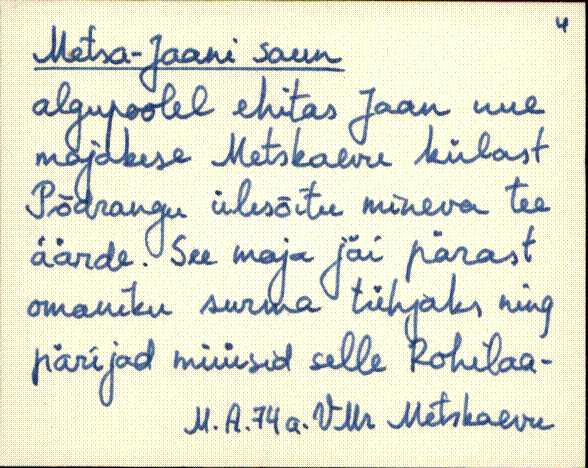 4
Metsa-Jaani saun
algupoolel ehitas Jaan uue
majakese Metskaevu külast
Põdrangu ülesõitu mineva tee
äärde. See maja jäi pärast
omaniku surma tühjaks ning
pärijad müüsid selle Rohilaa-
M.A.74 a. VMr Metskaevu